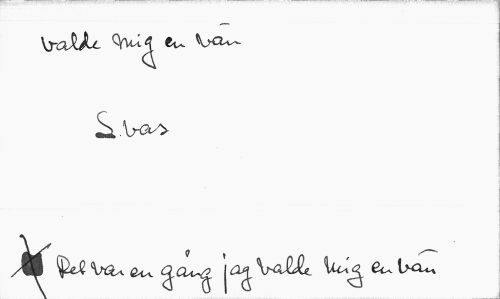 valde mig en vän
S. vas
Det var en gång jag valde mig en vän